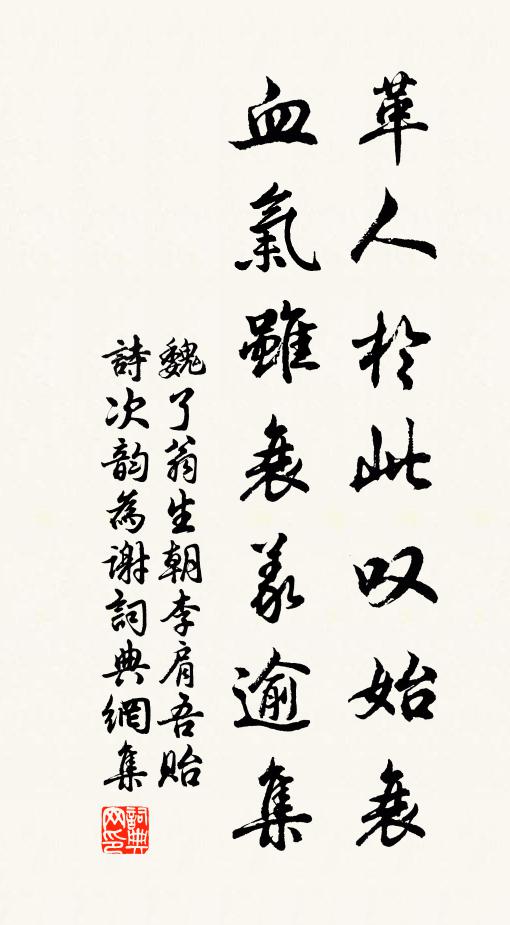 革人於此叹始衰
血氣雖衰义逾集
魏了翁生朝李肩吾贻
詩次韵為谢詞典網集
詞典网印